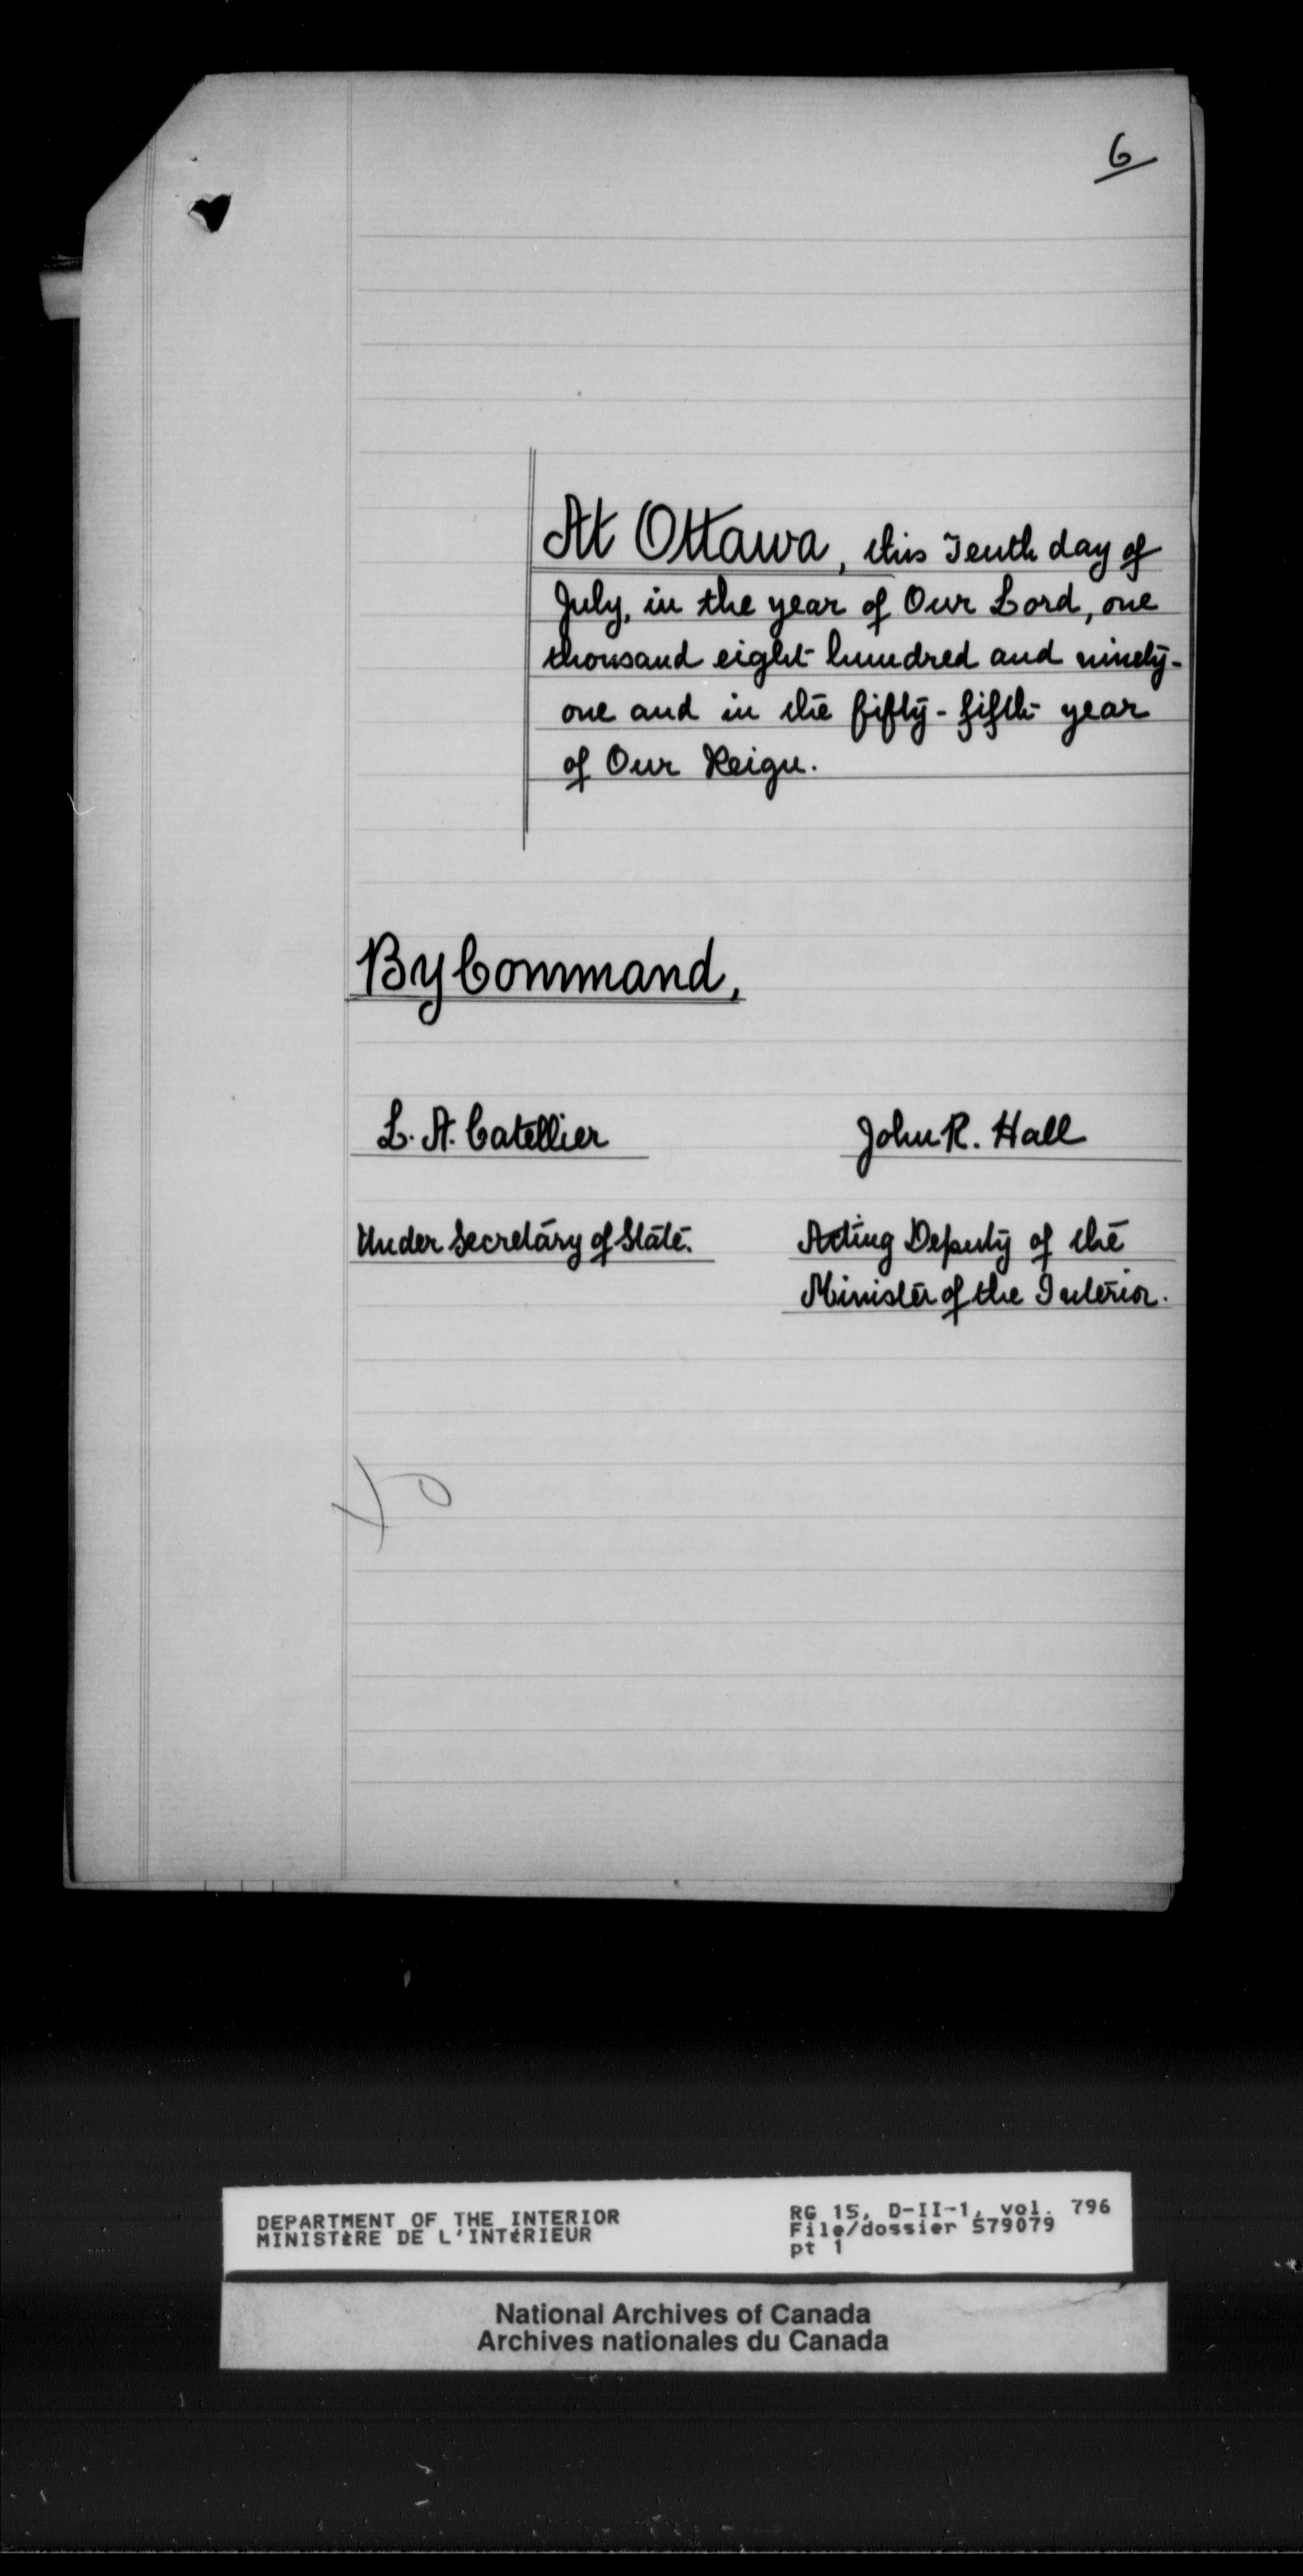 6
At Ottawa, this Tenth day of
July, in the year of Our Lord, one
thousand eight hundred and ninety-
one and in the fifty-fifth year
of Our Reign.
By Command,
L. A. Catellier
John R. Hall
Under Secretary of State.
Acting Deputy of the
Minister of the Interior.
DEPARTMENT OF THE INTERIOR
MINISTÈRE DE L'INTÉRIEUR
RG 15, D-II-1, vol. 796
File/dossier 579079
pt 1
National Archives of Canada
Archives nationales du Canada